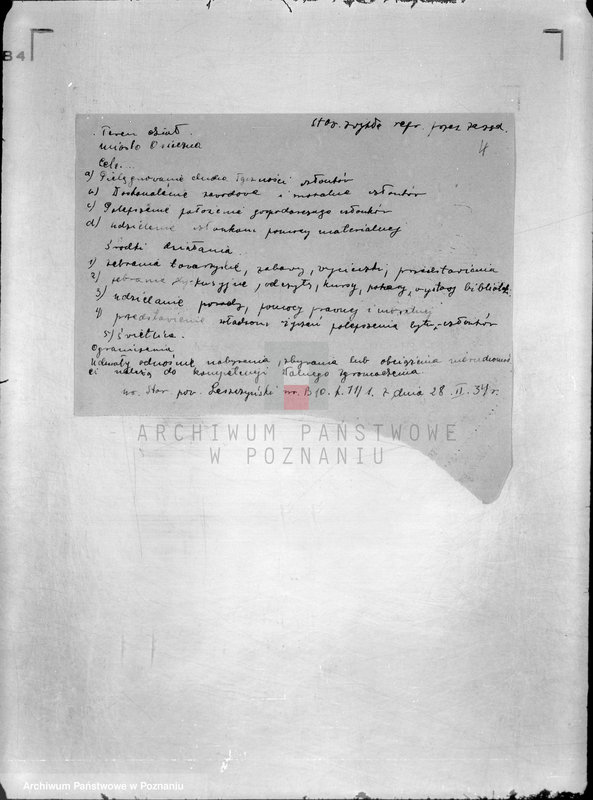 84
Stow. zwykłe rejr. przez zarząd.
4
Teren dział.
miasto Osieczna
Cele.
a) Pielęgnowanie ducha łączności członków
b) Doskonalenie zawodowe i moralne członków
c) Polepszenie położenia gospodarczego członków
d) udzielanie członkom pomocy materialnej
Środki działania.
1) zebrania towarzyskie, zabawy, wycieczki, przedstawienia
2) zebrania dyskusyjne, odczyty, kursy, pokazy, wystawy bibliotek.
3) udzielanie porady, pomocy prawnej i moralnej
4) przedstawienie władzom życzeń polepszenia bytu członków
5) świetlica.
Ograniczenia
Uchwały odnośnie nabywania, zbywania lub obciążenia nieruchomoś
ci należą do kompetencji Walnego Zgromadzenia.
Star. pow. Leszczyński nr. B10. dnia 28. II. 34 r.
ARCHIWUM PAŃSTWOWE
W POZNANIU
Archiwum Państwowe w Poznaniu